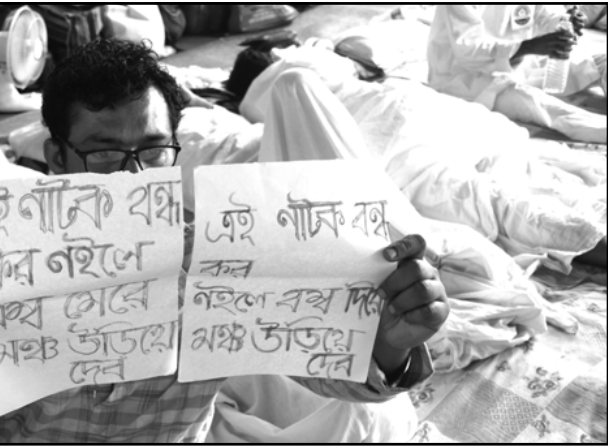 ই নাটক বন্ধ
কর নইলে
বম্ব মেরে
মঞ্চ উড়িয়ে
দেব
এই নাটক বন্ধ
কর
নইলে বম্ব দিয়ে
মঞ্চ উড়িয়ে
দেব